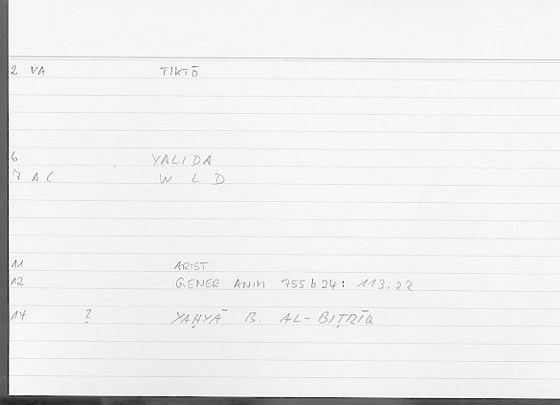 2 VA TIKTŌ
6 YALIDA
7 A C W L D
11 ARIST
12 GENER ANIM 755b24: 113.22
14 ? YAḤYĀ B. AL-BIṬRĪQ